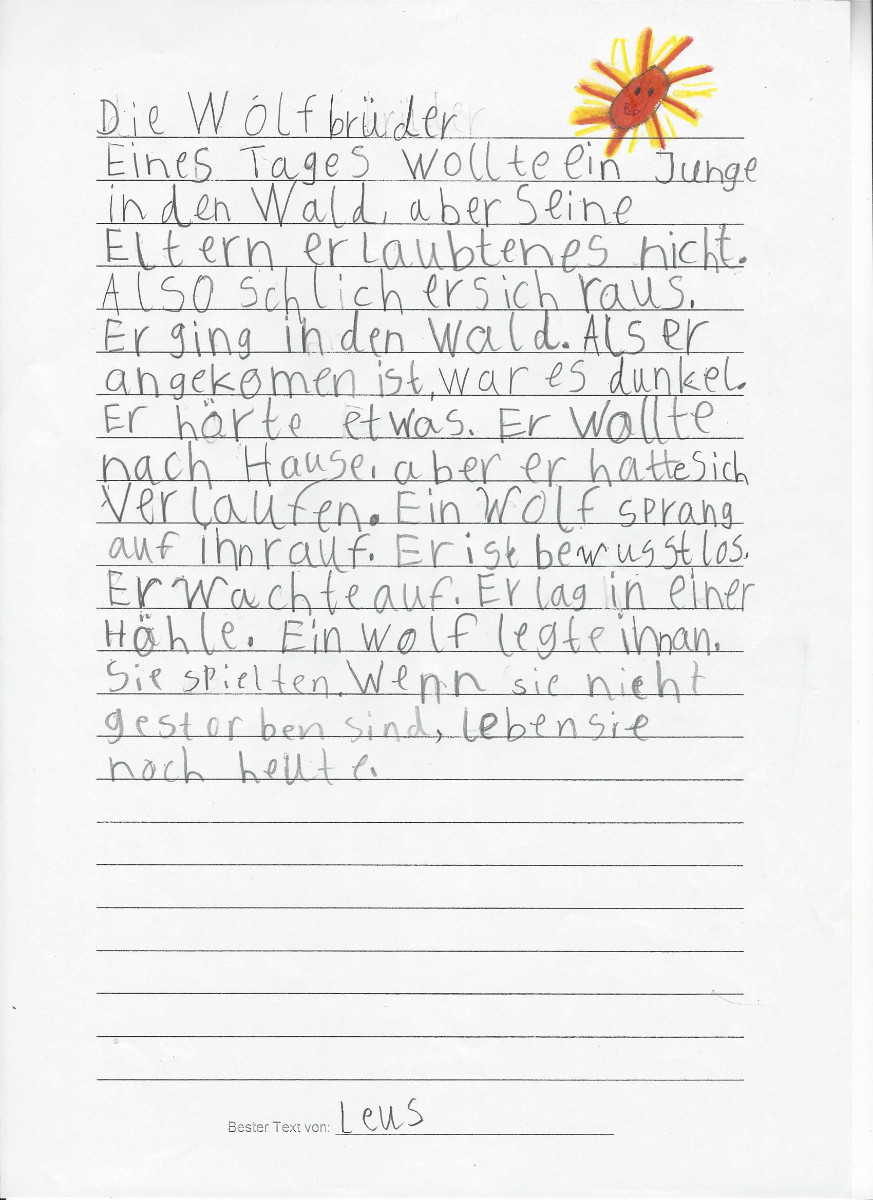 Die Wolfbrüder
Eines Tages wollte ein Junge
in den Wald, aber seine
Eltern erlaubten es nicht.
Also schlich er sich raus.
Er ging in den Wald. Als er
angekomen ist, war es dunkel.
Er hörte etwas. Er wollte
nach Hause, aber er hatte sich
verlaufen. Ein Wolf sprang
auf ihn rauf. Er ist bewusstlos.
Er wachte auf. Er lag in einer
Höhle. Ein Wolf legte ihn an.
Sie spielten. Wenn sie nicht
gestorben sind, leben sie
noch heute.
Bester Text von: Leus